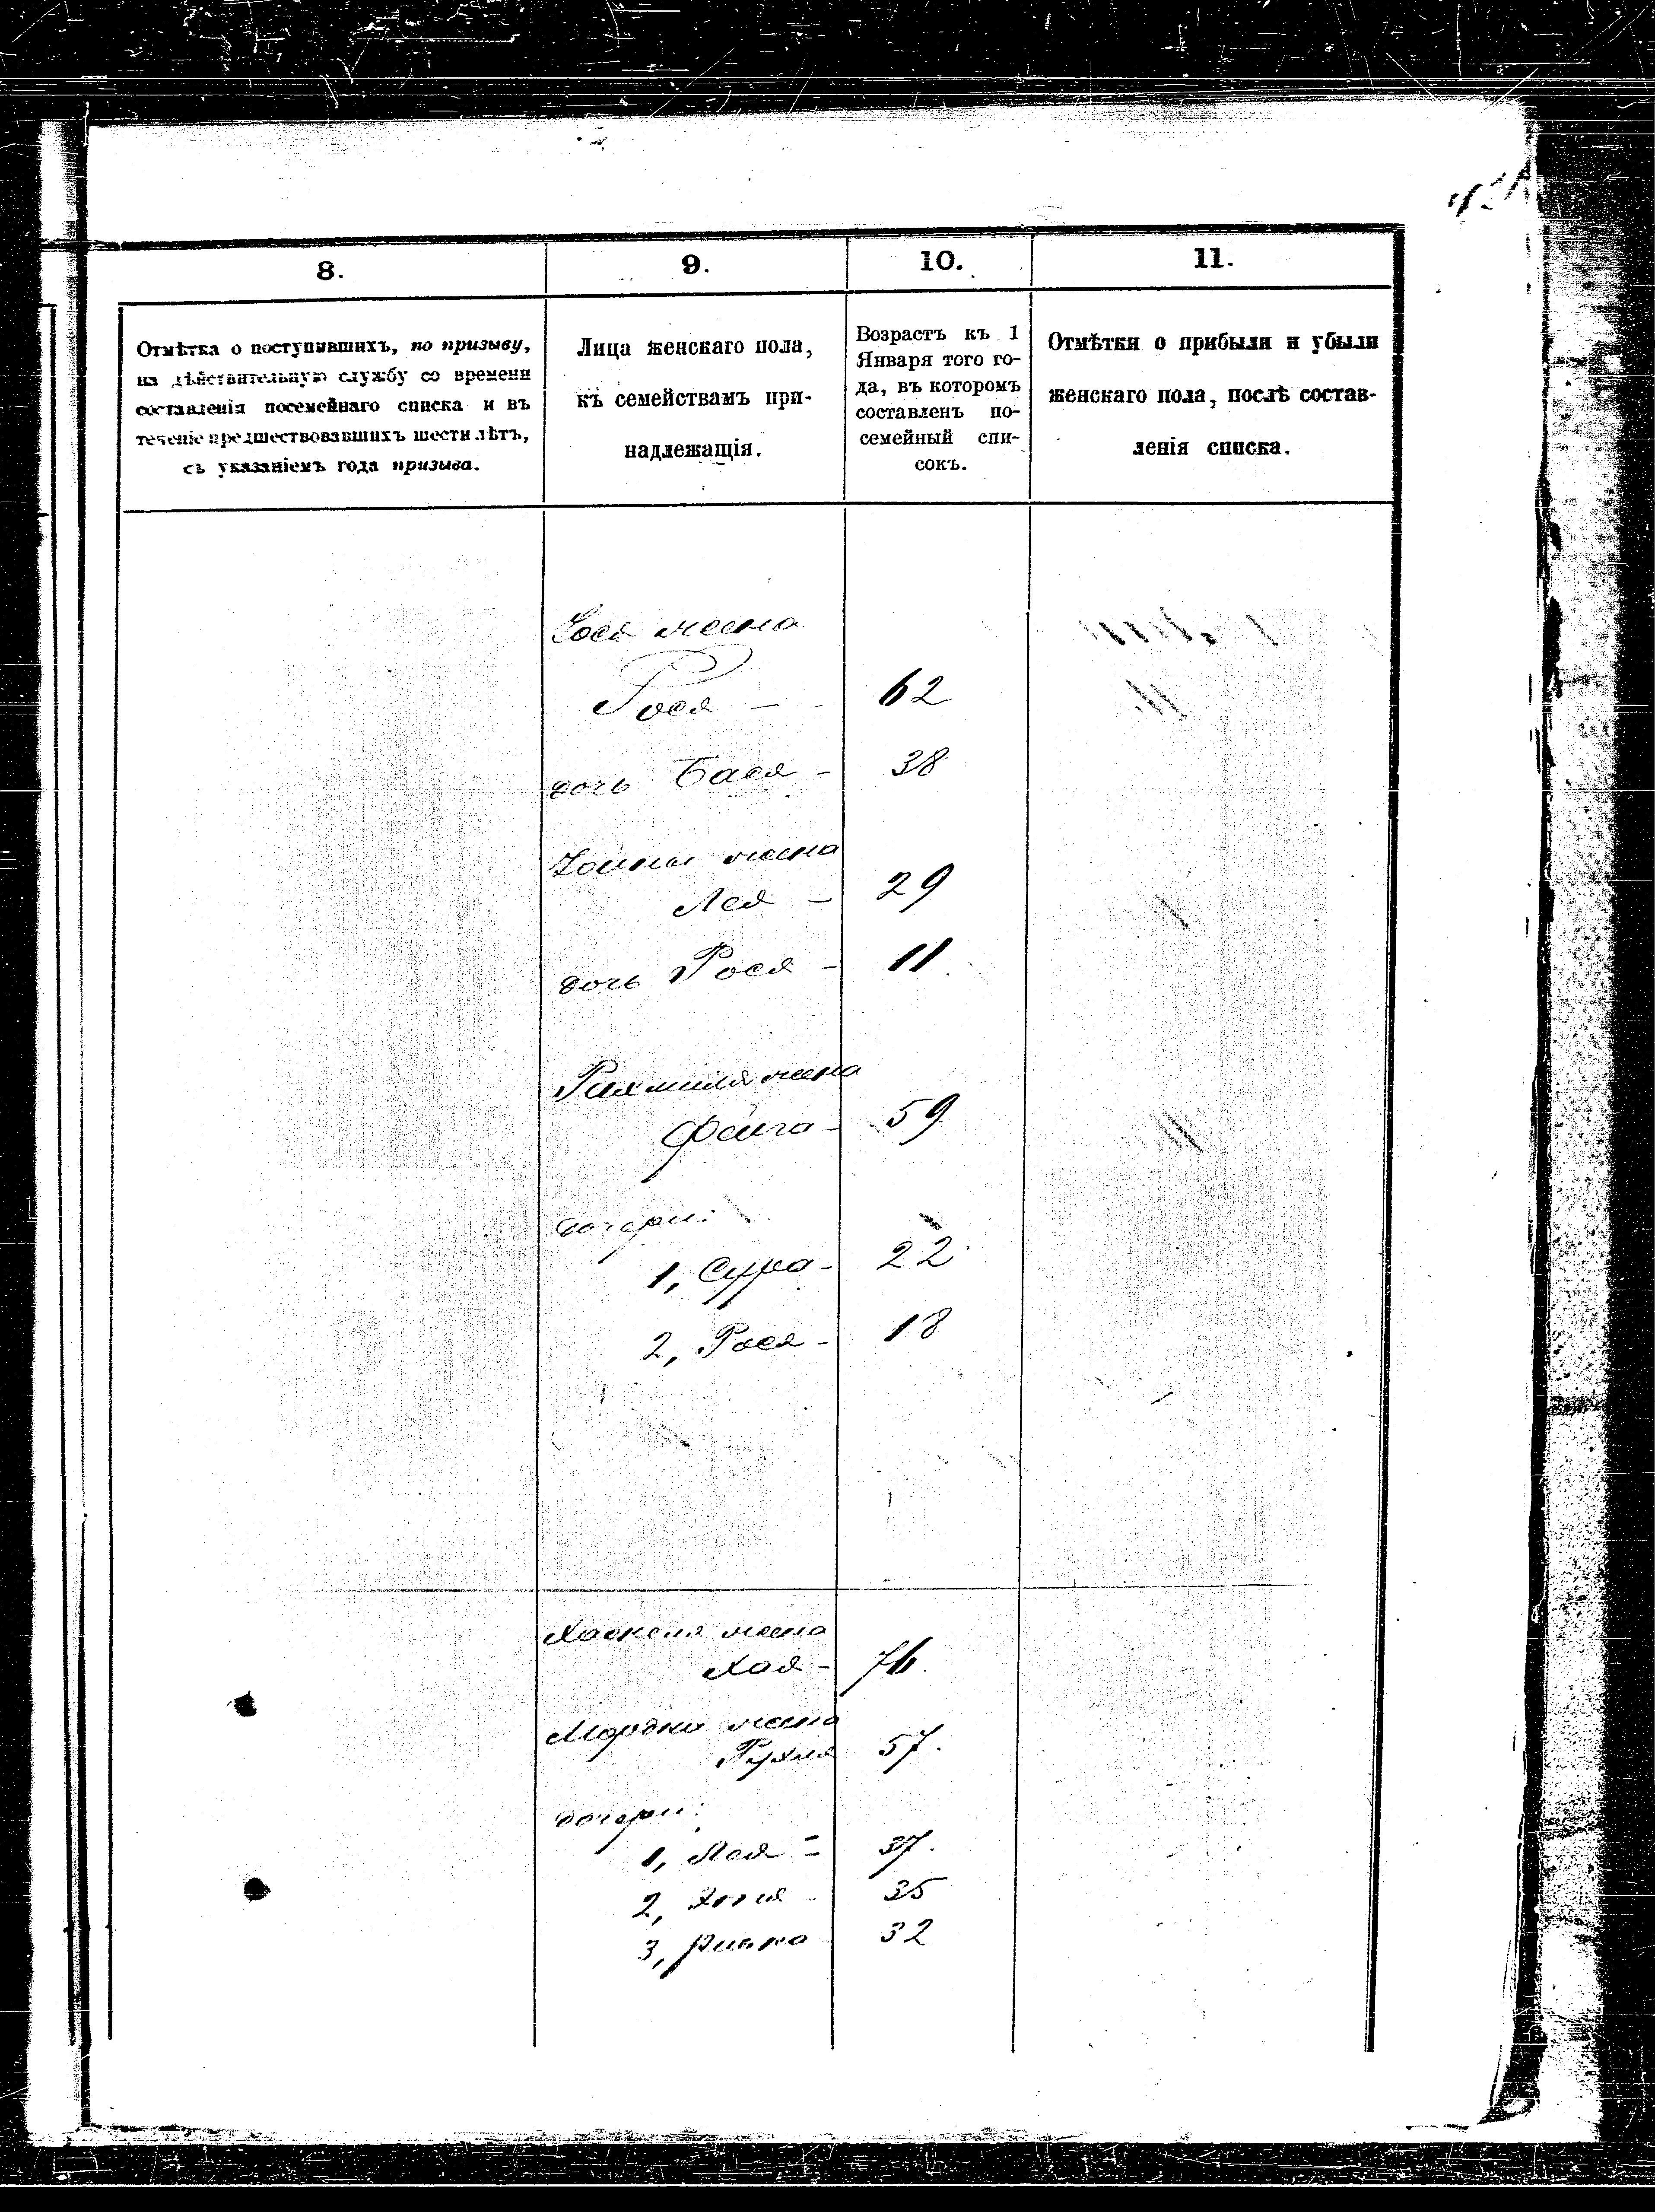 8.
9.
10.
11.
Отмѣтка о поступившихъ, по призыву,
на дѣйствительную службу со времени
составленія посемейнаго списка и въ
теченіе предшествовавшихъ шести лѣтъ,
съ указаніемъ года призыва.
Лица женскаго пола,
къ семействамъ при-
надлежащія.
Возрастъ къ 1
Января того го-
да, въ которомъ
составленъ по-
семейный спи-
сокъ.
Отмѣтки о прибыли и убыли
женскаго пола, послѣ состав-
ленія списка.
жена
Рося - 62
дочь Бася - 38
жена
Лея - 29
дочь Рося - 11
жена
Фейга - 59
дочери:
1, Сура - 22
2, Рося - 18
жена
Хая - 76
Мордки жена
Рухля 57.
дочери:
1, Лея - 37.
2, 35
3, Ривка 32